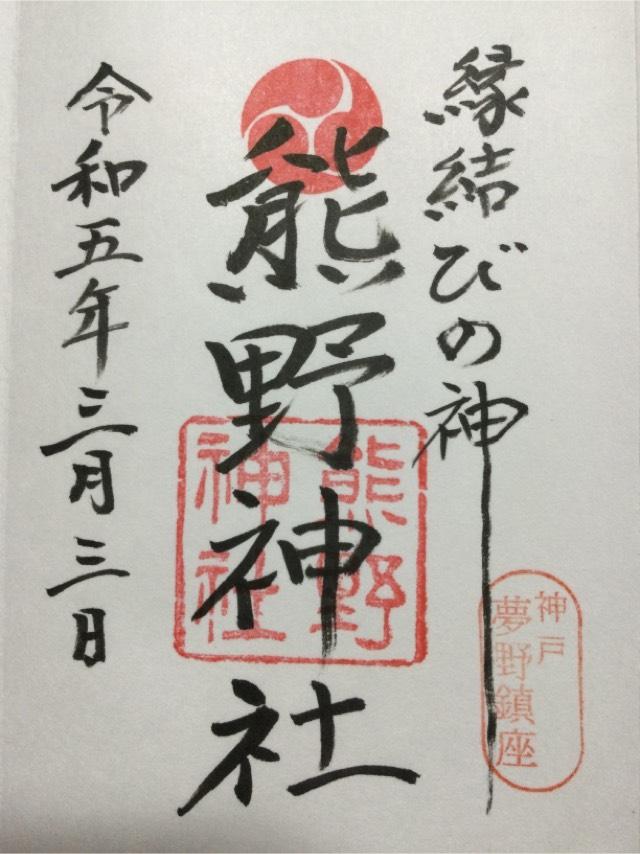 縁結びの神
神戸
夢野鎮座
熊野神社
熊野
神社
令和五年三月三日